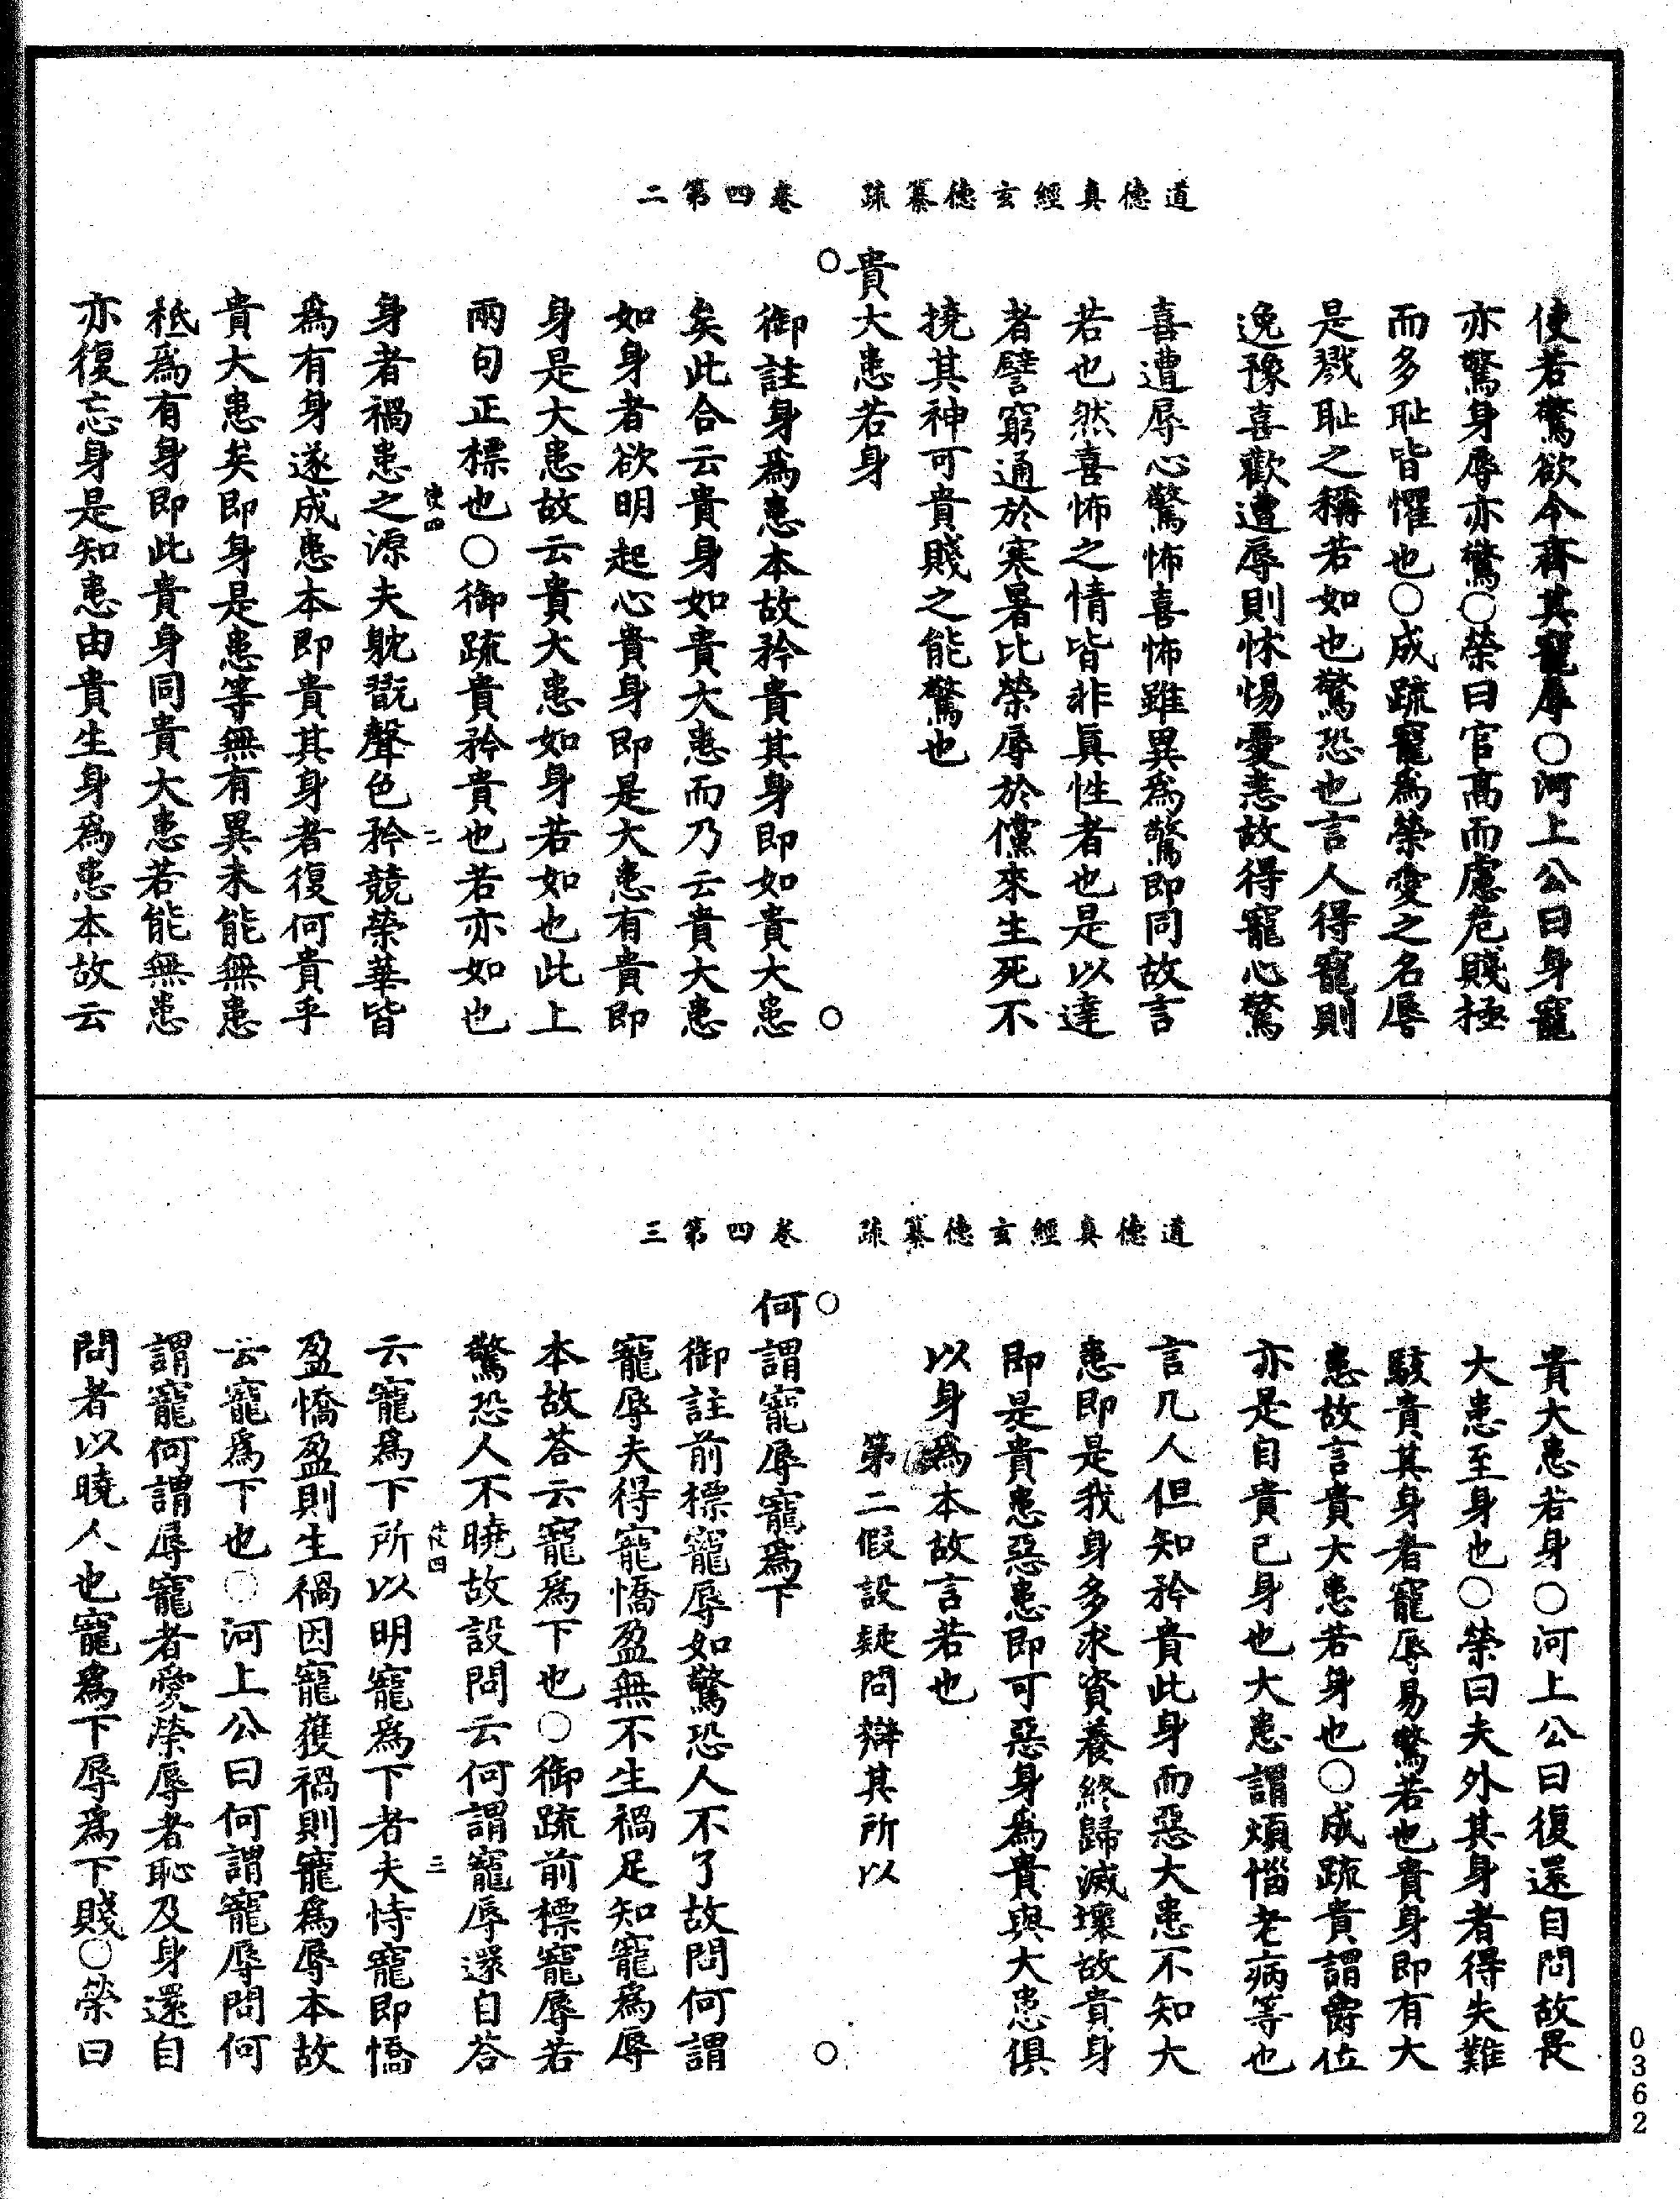 道德真經玄德纂疏　卷四第二
使若驚欲令齊其寵辱○河上公曰身寵
亦驚身辱亦驚○榮曰官高而慮危賤極
而多耻皆懼也○成疏寵爲榮愛之名辱
是戮耻之稱若如也驚恐也言人得寵則
逸豫喜歡遭辱則怵惕憂恚故得寵心驚
喜遭辱心驚怖喜怖雖異爲驚即同故言
若也然喜怖之情皆非真性者也是以達
者譬窮通於寒暑比榮辱於儻來生死不
撓其神可貴賤之能驚也
○貴大患若身○
御註身爲患本故矜貴其身即如貴大患
矣此合云貴身如貴大患而乃云貴大患
如身者欲明起心貴身即是大患有貴即
身是大患故云貴大患如身若如也此上
兩句正標也○御疏貴矜貴也若亦如也
使四　二
身者禍患之源夫躭翫聲色矜競榮華皆
爲有身遂成患本即貴其身者復何貴乎
貴大患矣即身是患等無有異未能無患
秪爲有身即此貴身同貴大患若能無患
亦復忘身是知患由貴生身爲患本故云
道德真經玄德纂疏　卷四第三
貴大患若身○河上公曰復還自問故畏
大患至身也○榮曰夫外其身者得失難
駭貴其身者寵辱易驚若也貴身即有大
患故言貴大患若身也○成疏貴謂爵位
亦是自貴己身也大患謂煩惱老病等也
言凡人但知矜貴此身而惡大患不知大
患即是我身多求資養終歸滅壞故貴身
即是貴患惡患即可惡身爲貴與大患俱
以身爲本故言若也
第二假設疑問辯其所以
○何謂寵辱寵爲下○
御註前標寵辱如驚恐人不了故問何謂
寵辱夫得寵憍盈無不生禍足知寵爲辱
本故荅云寵爲下也○御疏前標寵辱若
驚恐人不曉故設問云何謂寵辱還自荅
使四　三
云寵爲下所以明寵爲下者夫恃寵即憍
盈憍盈則生禍因寵獲禍則寵爲辱本故
云寵爲下也○河上公曰何謂寵辱問何
謂寵何謂辱寵者愛榮辱者恥及身還自
問者以曉人也寵爲下辱爲下賤○榮曰
0362